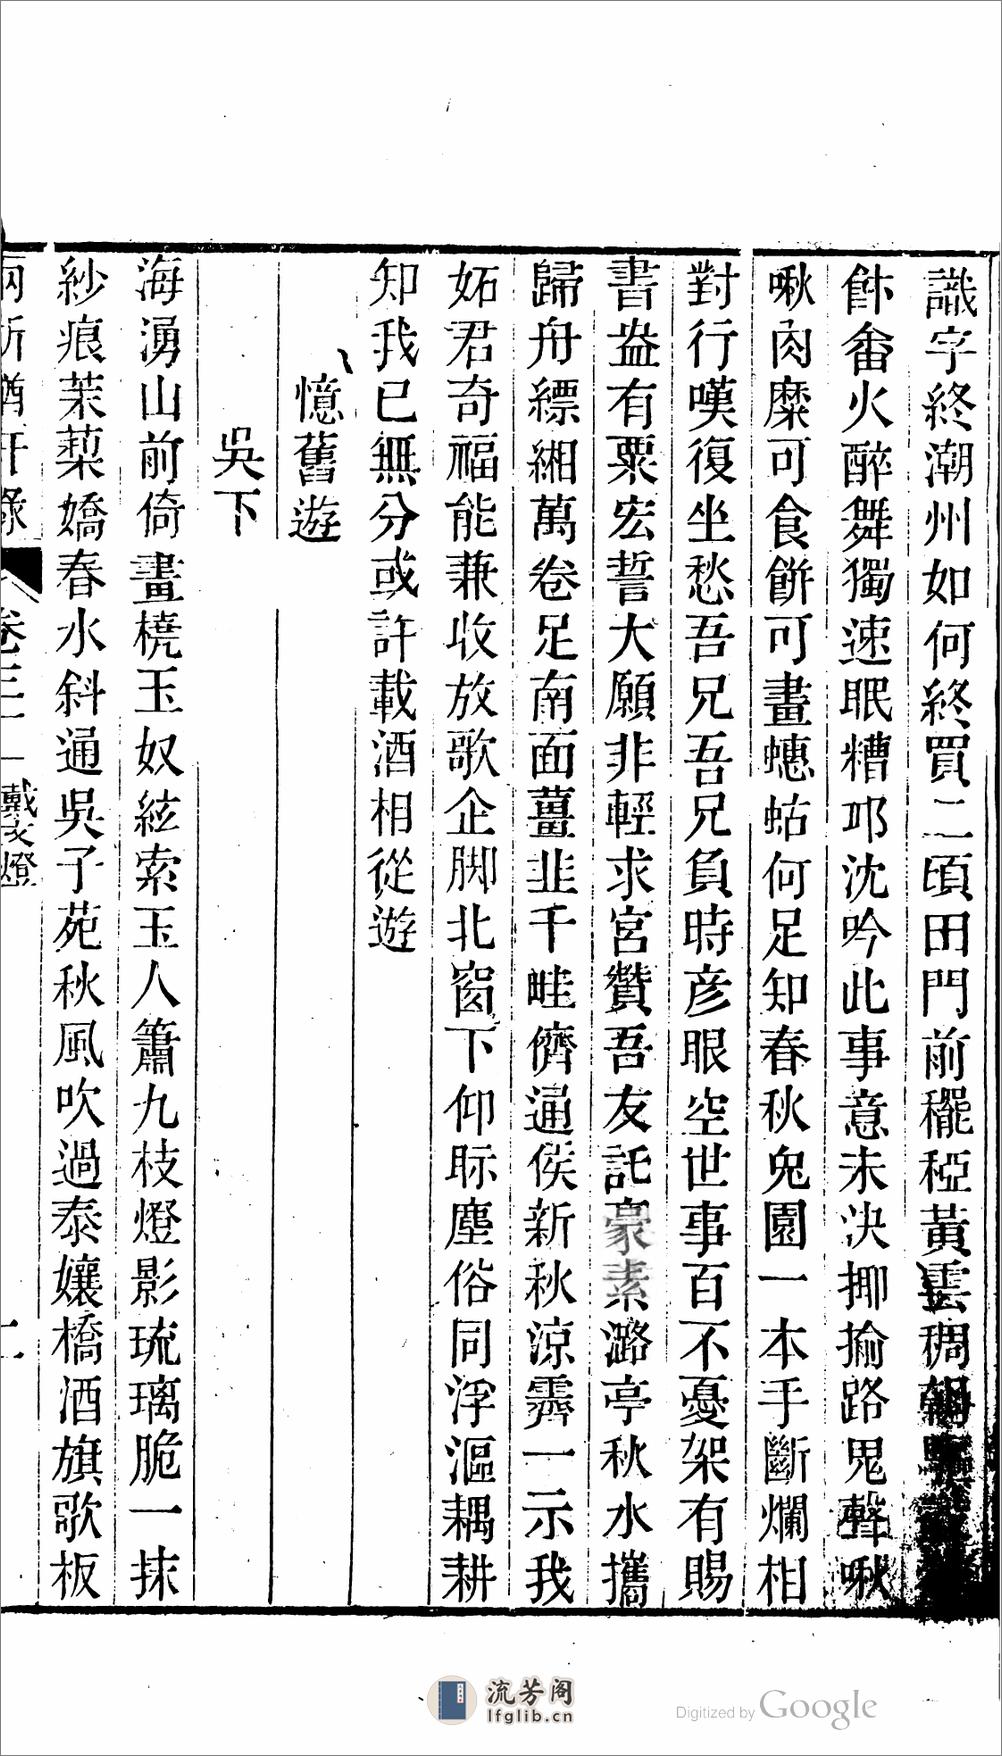 識字終潮州如何終買二頃田門前䆉稏黃雲稠
飰畬火醉舞獨速眠糟邱沈吟此事意未決揶揄路鬼聲啾
啾肉糜可食餅可畫蟪蛄何足知春秋兔園一本手斷爛相
對行嘆復坐愁吾兄吾兄負時彥眼空世事百不憂架有賜
書盎有粟宏誓大願非輕求宮贊吾友託豪素潞亭秋水攜
歸舟縹緗萬卷足南面薑韭千畦儕通侯新秋涼霽一示我
妬君奇福能兼收放歌企脚北窗下仰眎塵俗同浮漚耦耕
知我已無分或許載酒相從遊
憶舊遊
吳下
海湧山前倚畫橈玉奴絃索玉人簫九枝燈影琉璃脆一抹
紗痕茉蔾嬌春水斜通吳子苑秋風吹過泰孃橋酒旗歌板
兩浙輶軒錄 卷三一 戴文燈
流芳阁
lfglib.cn
Digitized by Google